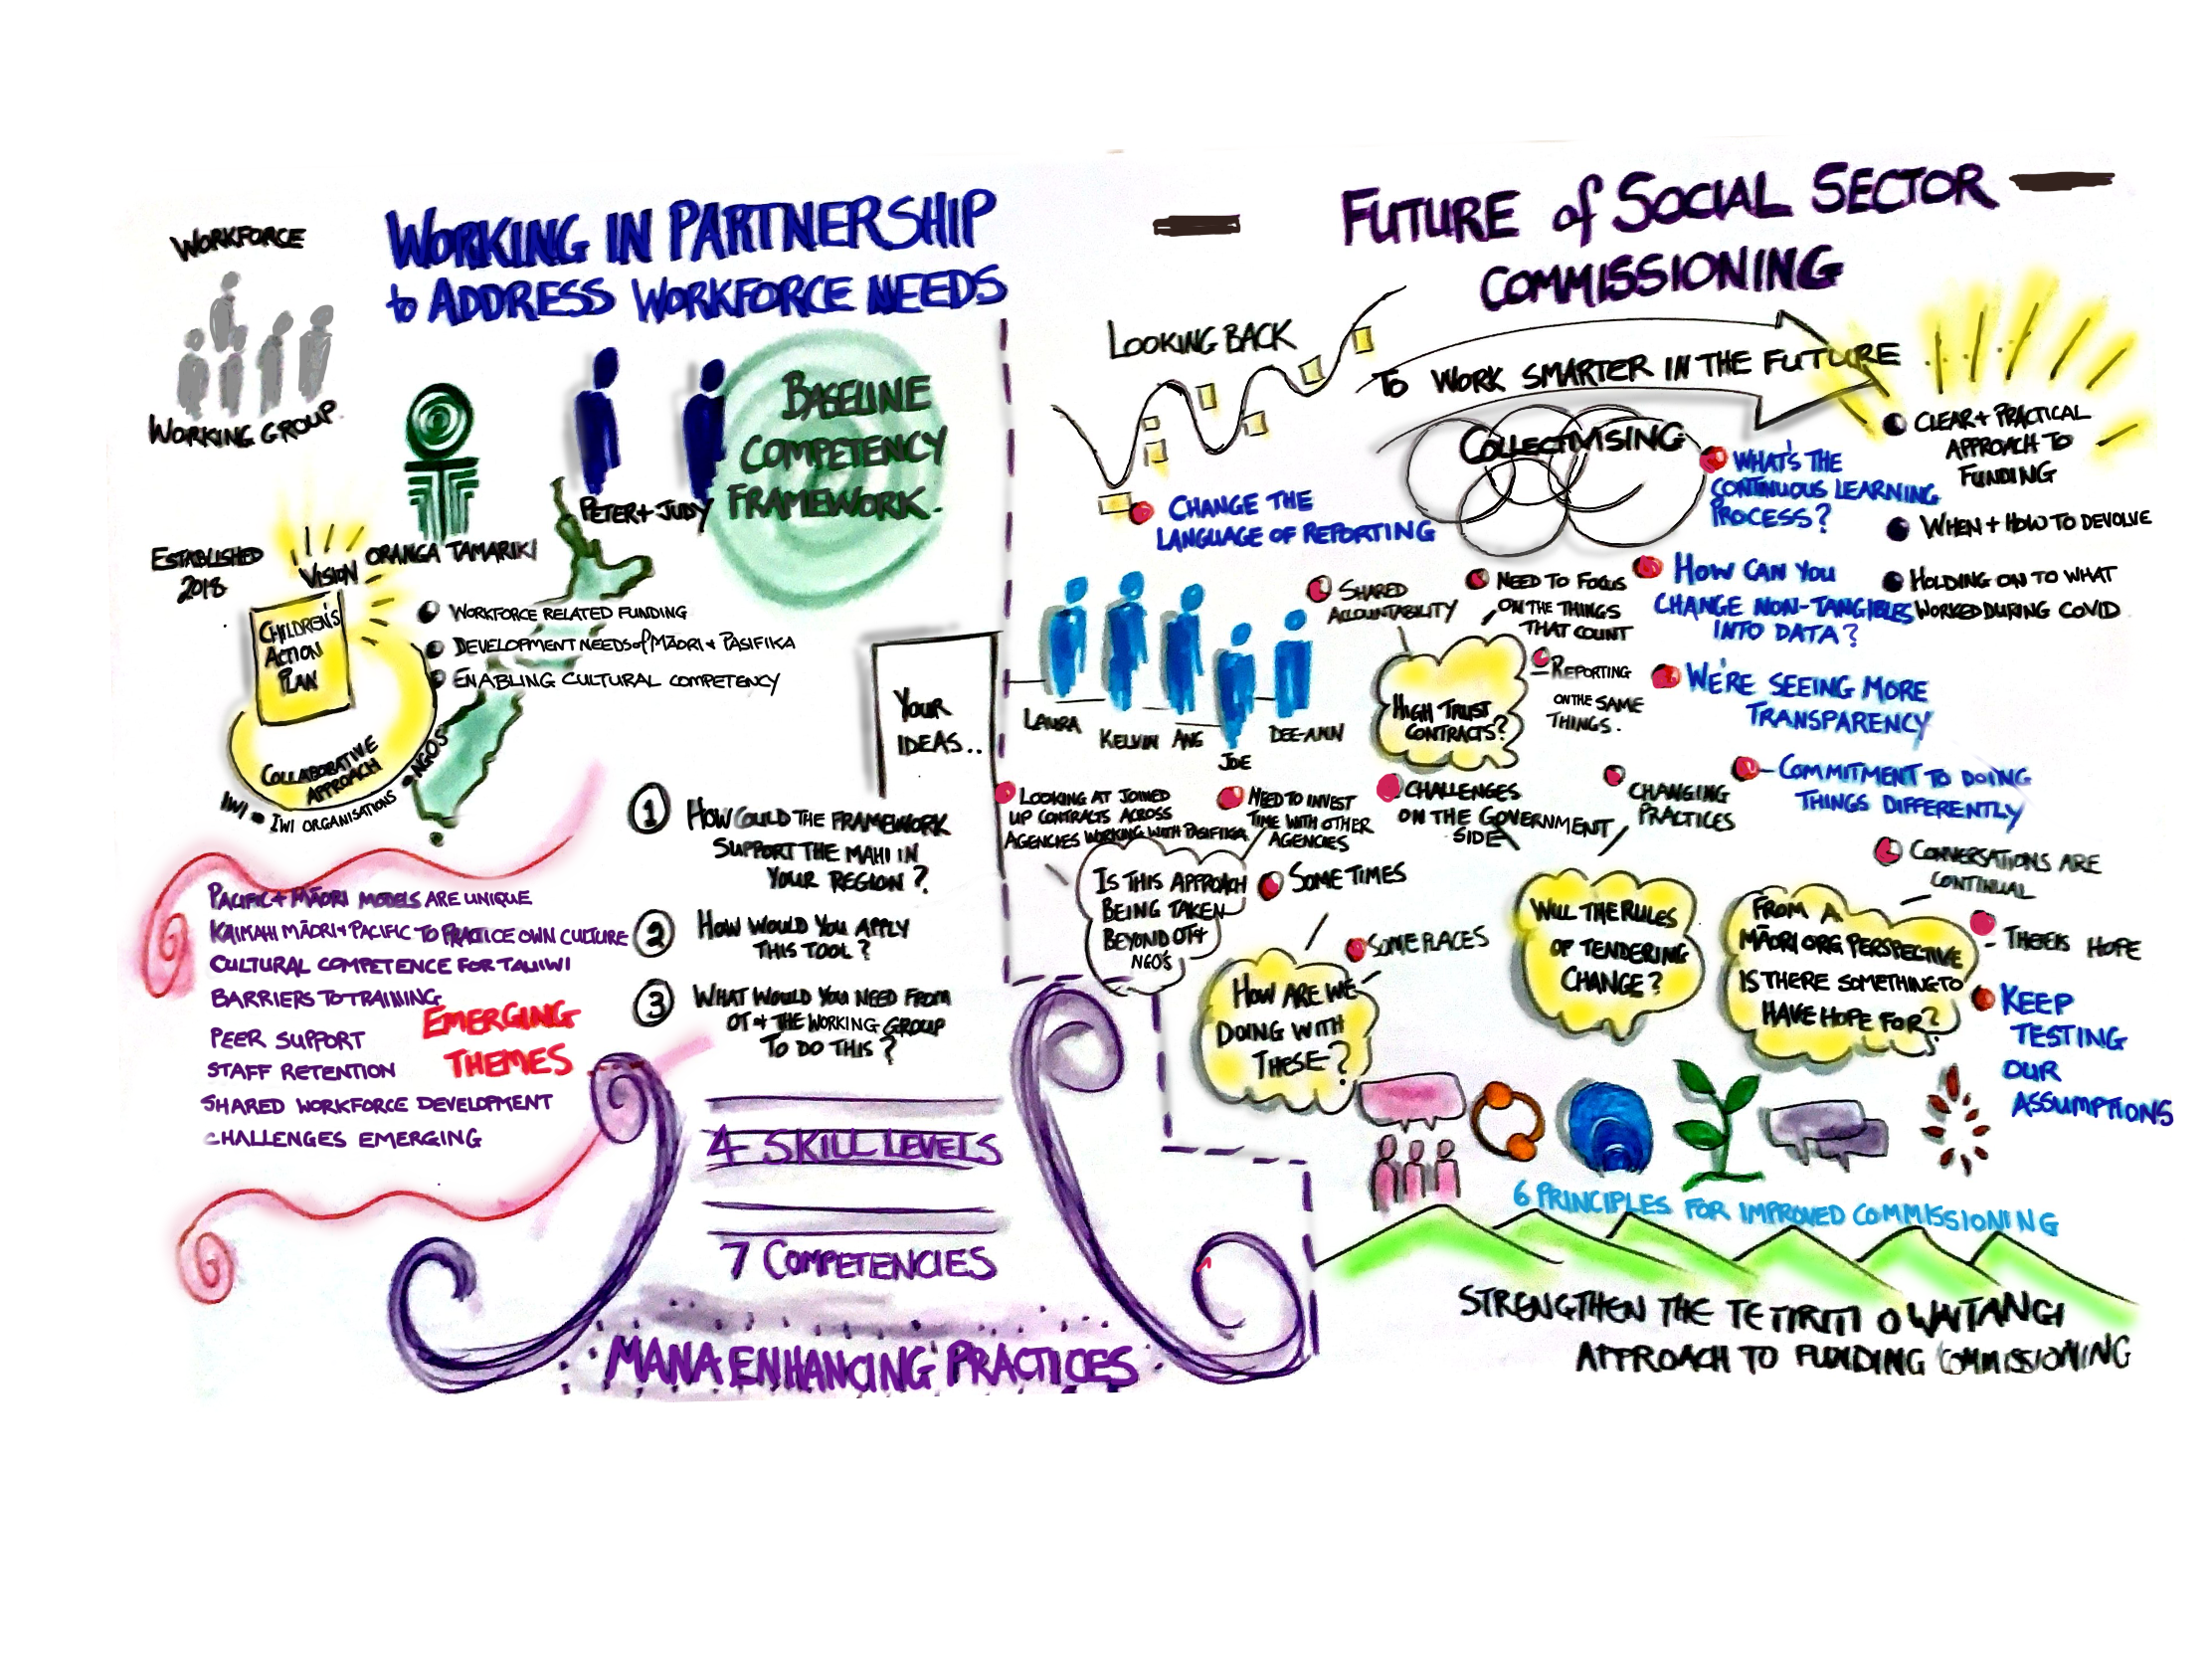 WORKFORCE
WORKING GROUP.
WORKING IN PARTNERSHIP
to ADDRESS WORKFORCE NEEDS
ORANGA TAMARIKI
PETER + JUDY
BASELINE
COMPETENCY
FRAMEWORK.
ESTABLISHED
2018
VISION
CHILDREN'S
ACTION
PLAN
COLLABORATIVE
APPROACH
IWI IWI ORGANISATIONS NGOS
WORKFORCE RELATED FUNDING
DEVELOPMENT NEEDS of MĀORI + PASIFIKA
ENABLING CULTURAL COMPETENCY
YOUR
IDEAS..
1 HOW COULD THE FRAMEWORK
SUPPORT THE MAHI IN
YOUR REGION?
2 HOW WOULD YOU APPLY
THIS TOOL?
3 WHAT WOULD YOU NEED FROM
OT + THE WORKING GROUP
TO DO THIS?
PACIFIC + MĀORI MODELS ARE UNIQUE
KAIMAHI MĀORI + PACIFIC TO PRACTICE OWN CULTURE
CULTURAL COMPETENCE FOR TAUIWI
BARRIERS TO TRAINING
PEER SUPPORT
STAFF RETENTION
SHARED WORKFORCE DEVELOPMENT
CHALLENGES EMERGING
EMERGING
THEMES
4 SKILL LEVELS
7 COMPETENCIES
MANA ENHANCING PRACTICES
FUTURE of SOCIAL SECTOR
COMMISSIONING
LOOKING BACK
TO WORK SMARTER IN THE FUTURE
COLLECTIVISING
CHANGE THE
LANGUAGE OF REPORTING
WHAT'S THE
CONTINUOUS LEARNING
PROCESS?
CLEAR + PRACTICAL
APPROACH TO
FUNDING
WHEN + HOW TO DEVOLVE
HOLDING ON TO WHAT
WORKED DURING COVID
LAURA
KELVIN
ANG
JOE
DEE-ANN
SHARED
ACCOUNTABILITY
NEED TO FOCUS
ON THE THINGS
THAT COUNT
HOW CAN YOU
CHANGE NON-TANGIBLES
INTO DATA?
HIGH TRUST
CONTRACTS?
REPORTING
ON THE SAME
THINGS.
WE'RE SEEING MORE
TRANSPARENCY
LOOKING AT JOINED
UP CONTRACTS ACROSS
AGENCIES WORKING WITH PASIFIKA
NEED TO INVEST
TIME WITH OTHER
AGENCIES
CHALLENGES
ON THE GOVERNMENT
SIDE
CHANGING
PRACTICES
COMMITMENT TO DOING
THINGS DIFFERENTLY
IS THIS APPROACH
BEING TAKEN
BEYOND OT +
NGO'S
SOMETIMES
SOME PLACES
HOW ARE WE
DOING WITH
THESE?
WILL THE RULES
OF TENDERING
CHANGE?
FROM A
MĀORI ORG PERSPECTIVE
IS THERE SOMETHING TO
HAVE HOPE FOR?
CONVERSATIONS ARE
CONTINUAL
THERE IS HOPE
KEEP
TESTING
OUR
ASSUMPTIONS
6 PRINCIPLES FOR IMPROVED COMMISSIONING
STRENGTHEN THE TE TIRITI O WAITANGI
APPROACH TO FUNDING COMMISSIONING